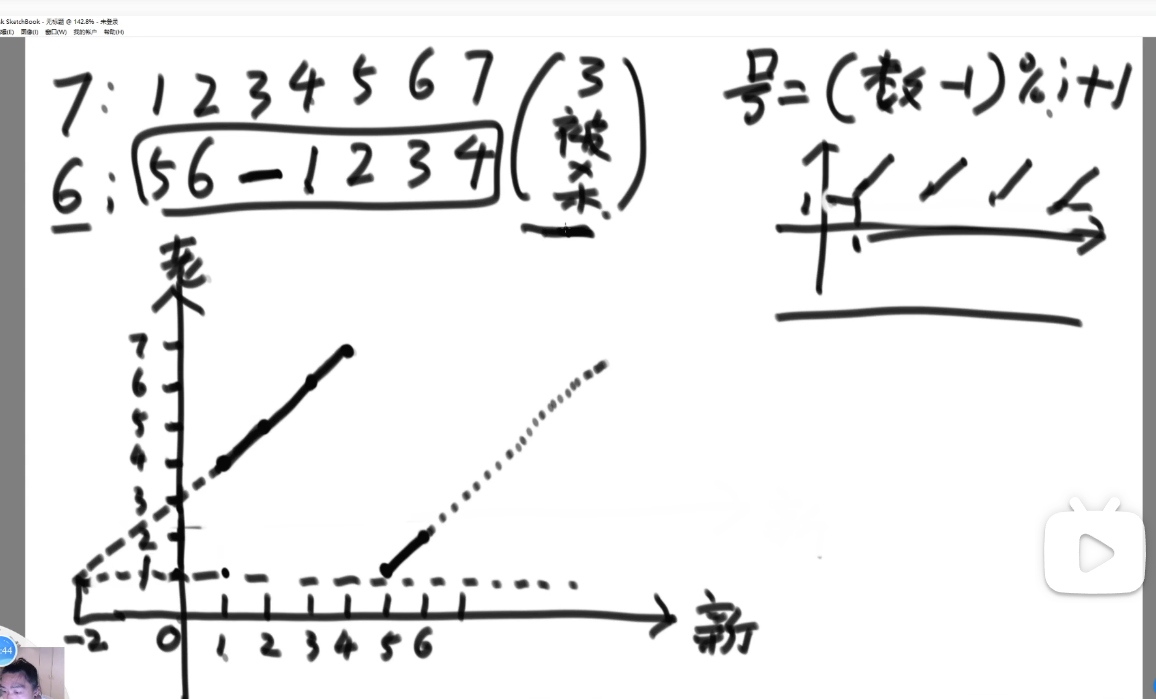 k SketchBook - 无标题 @ 142.8% - 未登录
编辑(E) 图像(I) 窗口(W) 我的帐户 帮助(H)
7: 1 2 3 4 5 6 7
6: 5 6 — 1 2 3 4
(3被杀)
号=(数-1)%i+1
1
1
老
7
6
5
4
3
2
1
-2 0 1 2 3 4 5 6
新
:44